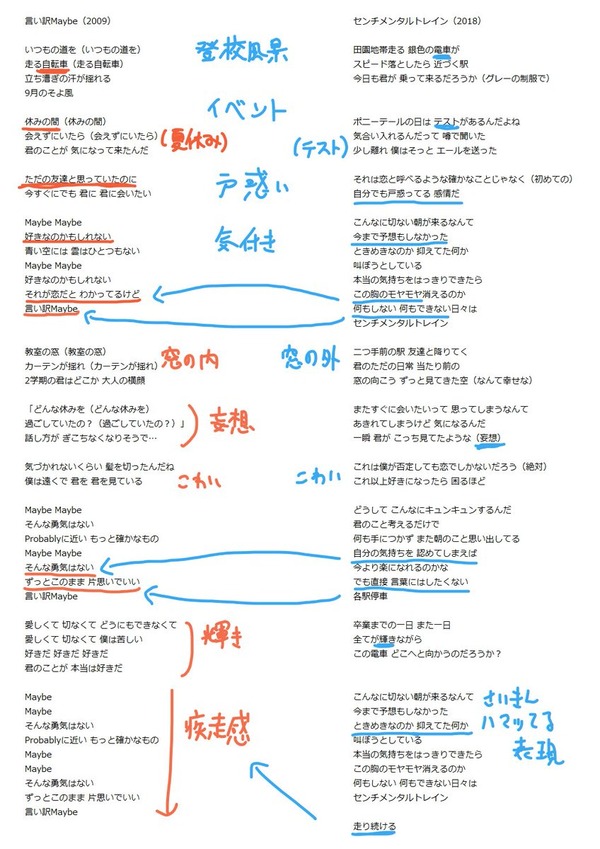 言い訳Maybe（2009）
いつもの道を（いつもの道を）
走る自転車（走る自転車）
立ち漕ぎの汗が揺れる
9月のそよ風
休みの間（休みの間）
会えずにいたら（会えずにいたら）
君のことが 気になって来たんだ
ただの友達と思っていたのに
今すぐにでも 君に 君に会いたい
Maybe Maybe
好きなのかもしれない
青い空には 雲はひとつもない
Maybe Maybe
好きなのかもしれない
それが恋だと わかってるけど
言い訳Maybe
教室の窓（教室の窓）
カーテンが揺れ（カーテンが揺れ）
2学期の君はどこか 大人の横顔
「どんな休みを（どんな休みを）
過ごしていたの？（過ごしていたの？）」
話し方が ぎこちなくなりそうで…
気づかれないくらい 髪を切ったんだね
僕は遠くで 君を 君を見ている
Maybe Maybe
そんな勇気はない
Probablyに近い もっと確かなもの
Maybe Maybe
そんな勇気はない
ずっとこのまま 片思いでいい
言い訳Maybe
愛しくて 切なくて どうにもできなくて
愛しくて 切なくて 僕は苦しい
好きだ 好きだ 好きだ
君のことが 本当は好きだ
Maybe
Maybe
そんな勇気はない
Probablyに近い もっと確かなもの
Maybe
Maybe
そんな勇気はない
ずっとこのまま 片思いでいい
言い訳Maybe
登校風景
イベント
（夏休み）
（テスト）
戸惑い
気付き
窓の内
窓の外
妄想
こわい
こわい
輝き
疾走感
センチメンタルトレイン（2018）
田園地帯走る 銀色の電車が
スピード落としたら 近づく駅
今日も君が 乗って来るだろうか（グレーの制服で）
ポニーテールの日は テストがあるんだよね
気合い入れるんだって 噂で聞いた
少し離れ 僕はそっと エールを送った
それは恋と呼べるような確かなことじゃなく（初めての）
自分でも戸惑ってる 感情だ
こんなに切ない朝が来るなんて
今まで予想もしなかった
ときめきなのか 抑えてた何か
叫ぼうとしている
本当の気持ちをはっきりできたら
この胸のモヤモヤ消えるのか
何もしない 何もできない日々は
センチメンタルトレイン
二つ手前の駅 友達と降りてく
君のただの日常 当たり前の
窓の向こう ずっと見てきた空（なんて幸せな）
またすぐに会いたいって 思ってしまうなんて
あきれてしまうけど 気になるんだ
一瞬 君が こっち見てたような（妄想）
これは僕が否定しても恋でしかないだろう（絶対）
これ以上好きになったら 困るほど
どうして こんなにキュンキュンするんだ
君のこと考えるだけで
何も手につかず また朝のこと思い出してる
自分の気持ちを 認めてしまえば
今より楽になれるのかな
でも直接 言葉にはしたくない
各駅停車
卒業までの一日 また一日
全てが輝きながら
この電車 どこへと向かうのだろうか？
こんなに切ない朝が来るなんて
今まで予想もしなかった
ときめきなのか 抑えてた何か
叫ぼうとしている
本当の気持ちをはっきりできたら
この胸のモヤモヤ消えるのか
何もしない 何もできない日々は
センチメンタルトレイン
走り続ける
さいきん
ハマッてる
表現